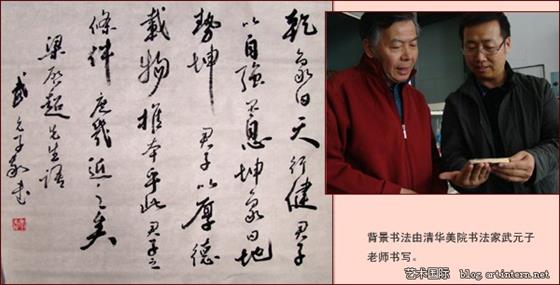 乾象曰天行健君子
以自強不息坤象曰地
勢坤 君子以厚德
載物推本乎此君子之
條件庶幾近之矣
梁啟超先生語
武元子敬書
背景书法由清华美院书法家武元子
老师书写。
艺术国际 blog.artintern.net